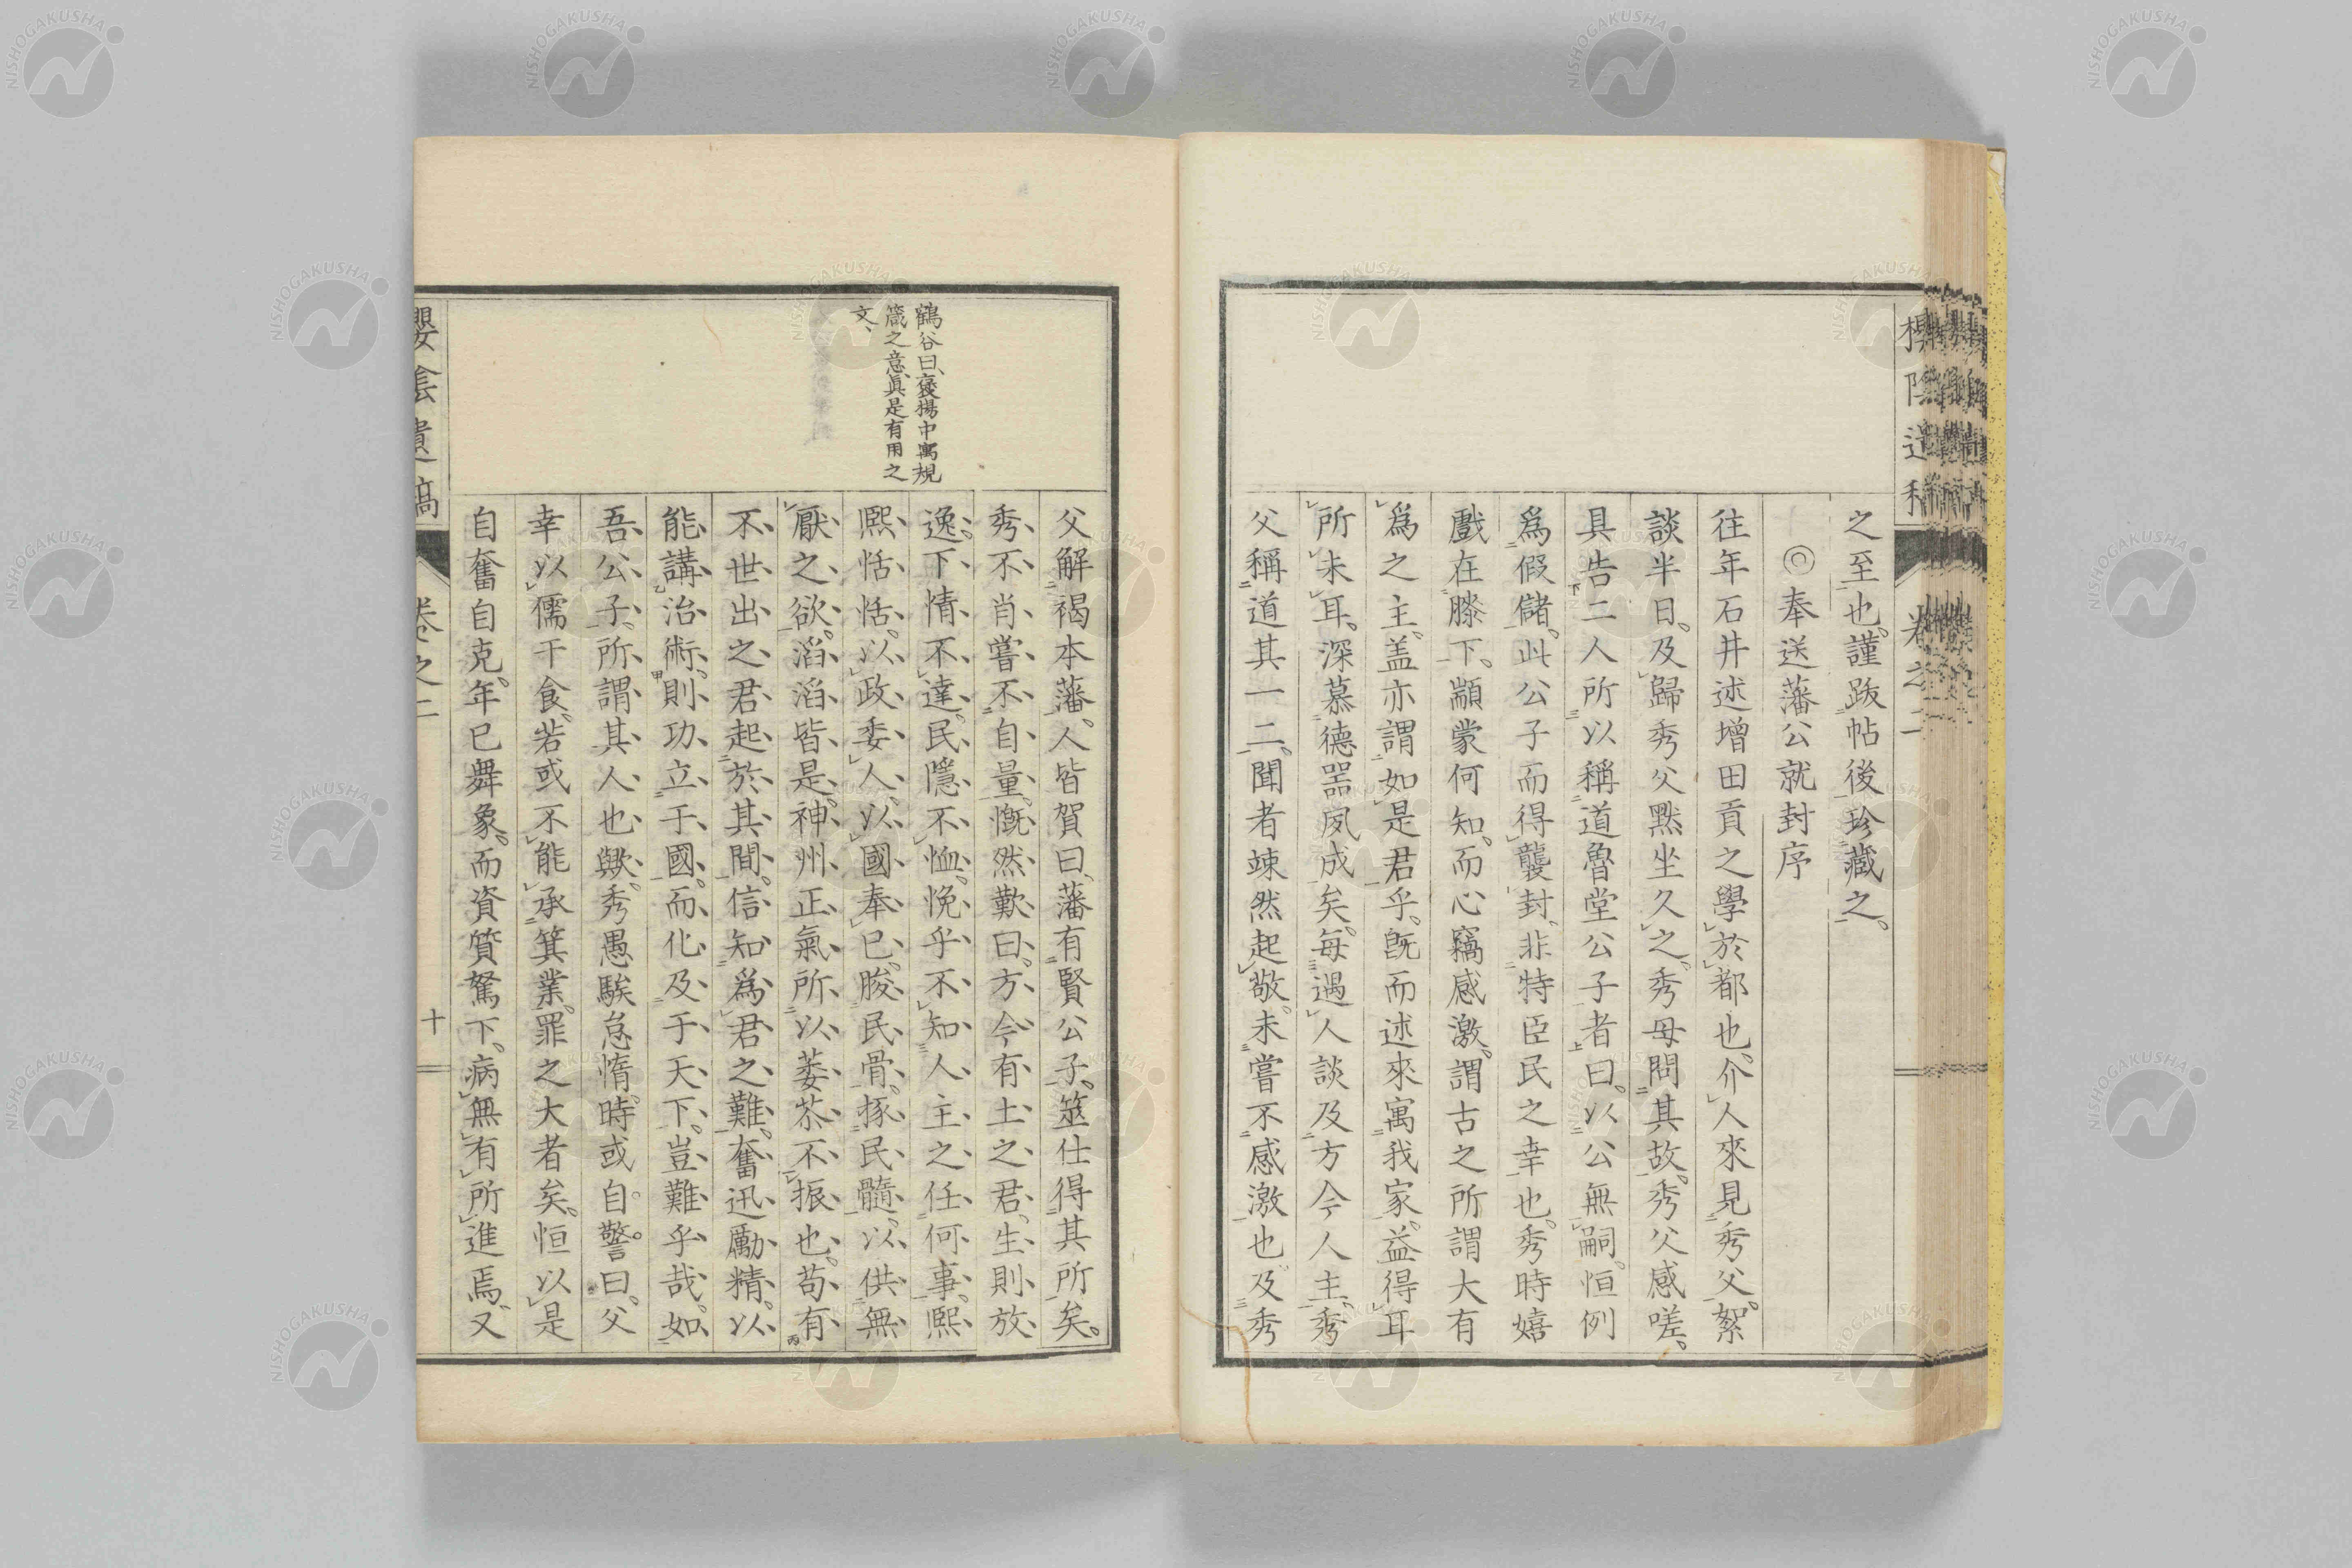 之至也。謹跋帖後珍藏之。
◎奉送藩公就封序
往年石井述增田貢之學於都也、介人來見秀父。絮
談半日。及歸秀父黙坐久之。秀母問其故。秀父感嗟。
具告二人所以稱道魯堂公子者曰。以公無嗣。恒例
爲假儲。此公子而得襲封、非特臣民之幸也。秀時嬉
戲在膝下。顓蒙何知。而心竊感激。謂古之所謂大有
爲之主。盖亦謂如是君乎。既而述來寓我家。益得耳
所未耳。深慕德器夙成矣。每遇人談及方今人主。秀
父稱道其一二。聞者竦然起敬。未嘗不感激也。及秀
父解褐本藩、人皆賀曰、藩有賢公子。筮仕得其所矣。
秀不肖嘗不自量。慨然歎曰。方今有土之君。生則放
逸。下情不達。民隱不恤。悗乎不知人主之任何事。熙
熙恬恬。以政委人。以國奉已。朘民骨。掊民髓。以供無
厭之欲。滔滔皆是。神州正氣所以萎苶不振也。苟有
不世出之君起於其間。信知爲君之難。奮迅勵精。以
能講治術。則功立于國。而化及于天下。豈難乎哉。如
吾公子。所謂其人也歟。秀愚騃怠惰。時或自警曰。父
幸以儒干食。若或不能承箕業。罪之大者矣。恒以是
自奮自克。年已舞象。而資質駑下。病無有所進焉。又
鶴谷曰、襃揚中寓規
箴之意、眞是有用之
文、
櫻陰遺稿
卷之二
十
NISHOGAKUSHA